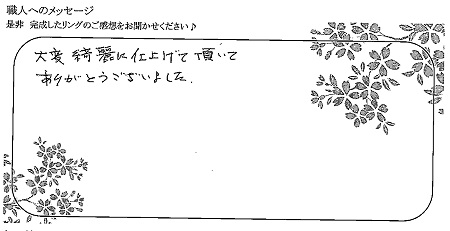 職人へのメッセージ
是非 完成したリングのご感想をお聞かせください♪
大変 綺麗に仕上げて頂いて
ありがとうございました。